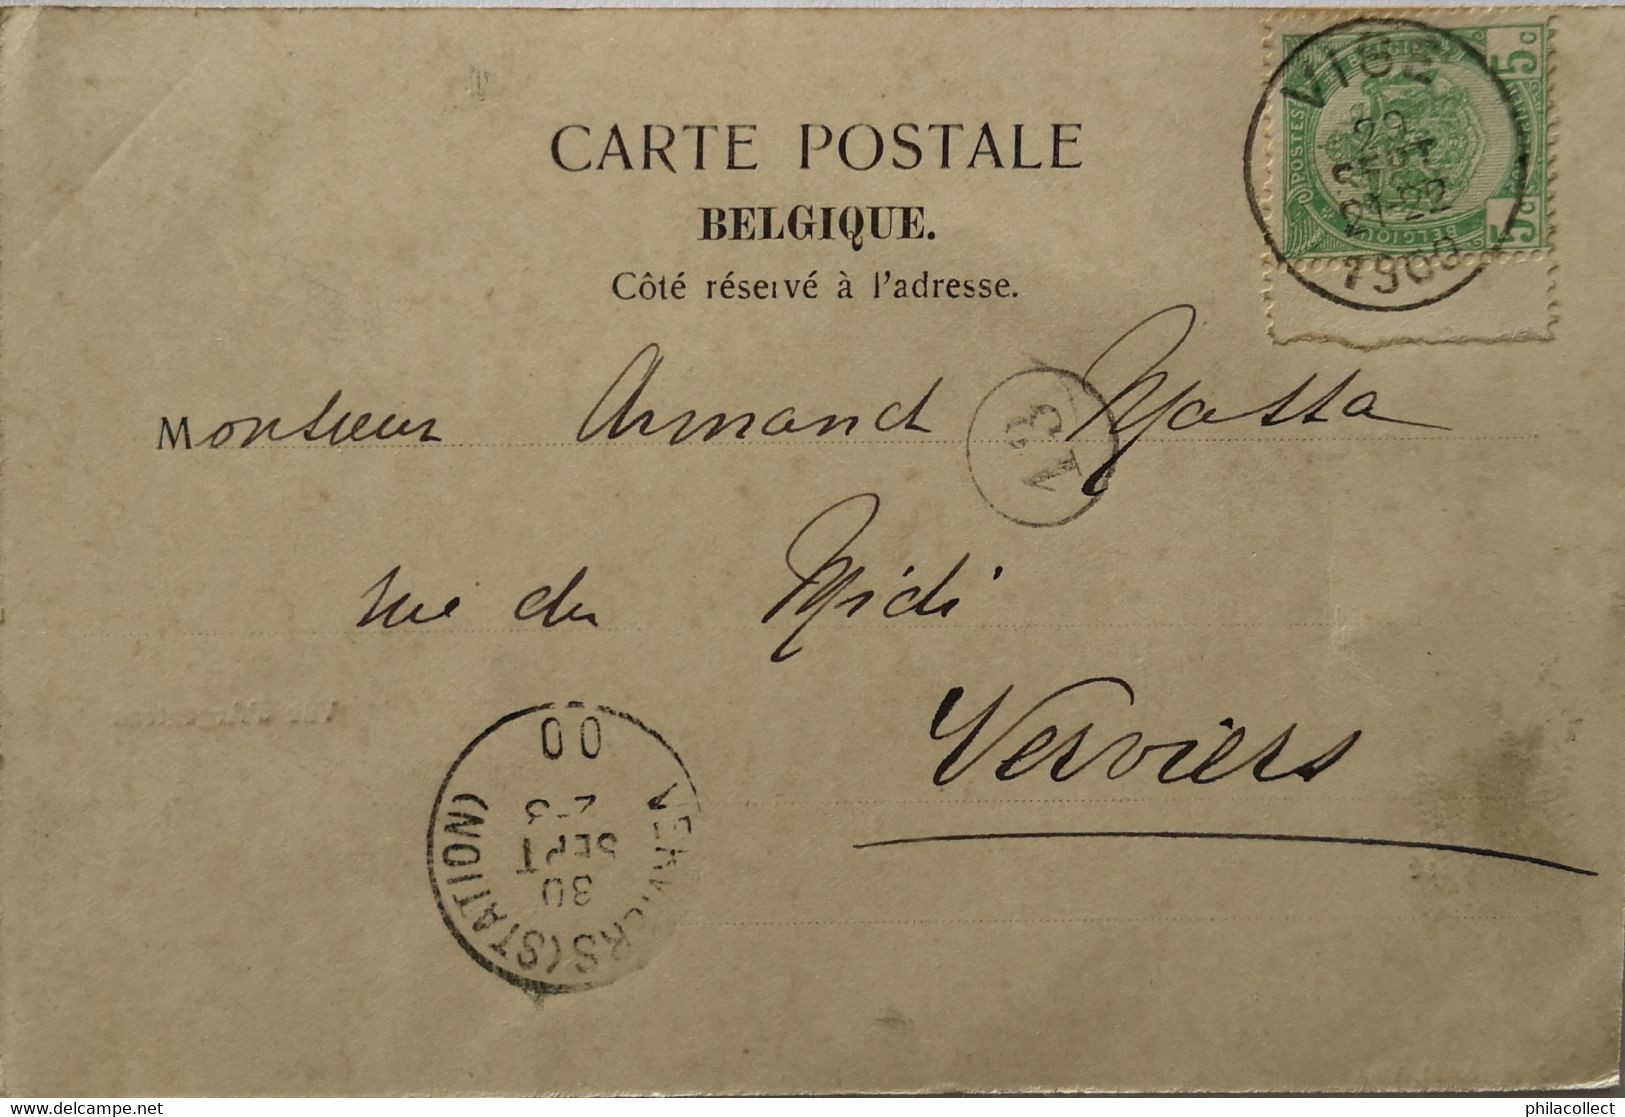 CARTE POSTALE
BELGIQUE.
Côté réservé à l'adresse.
BELGIË
POSTES
BELGIQUE
5 c
5 c
VISÉ
29
SEPT
21-22
1900
Monsieur Armand Massa
13
rue du Midi
Verviers
VERVIERS (STATION)
30
SEPT
2-3
00
delcampe.net
philacollect